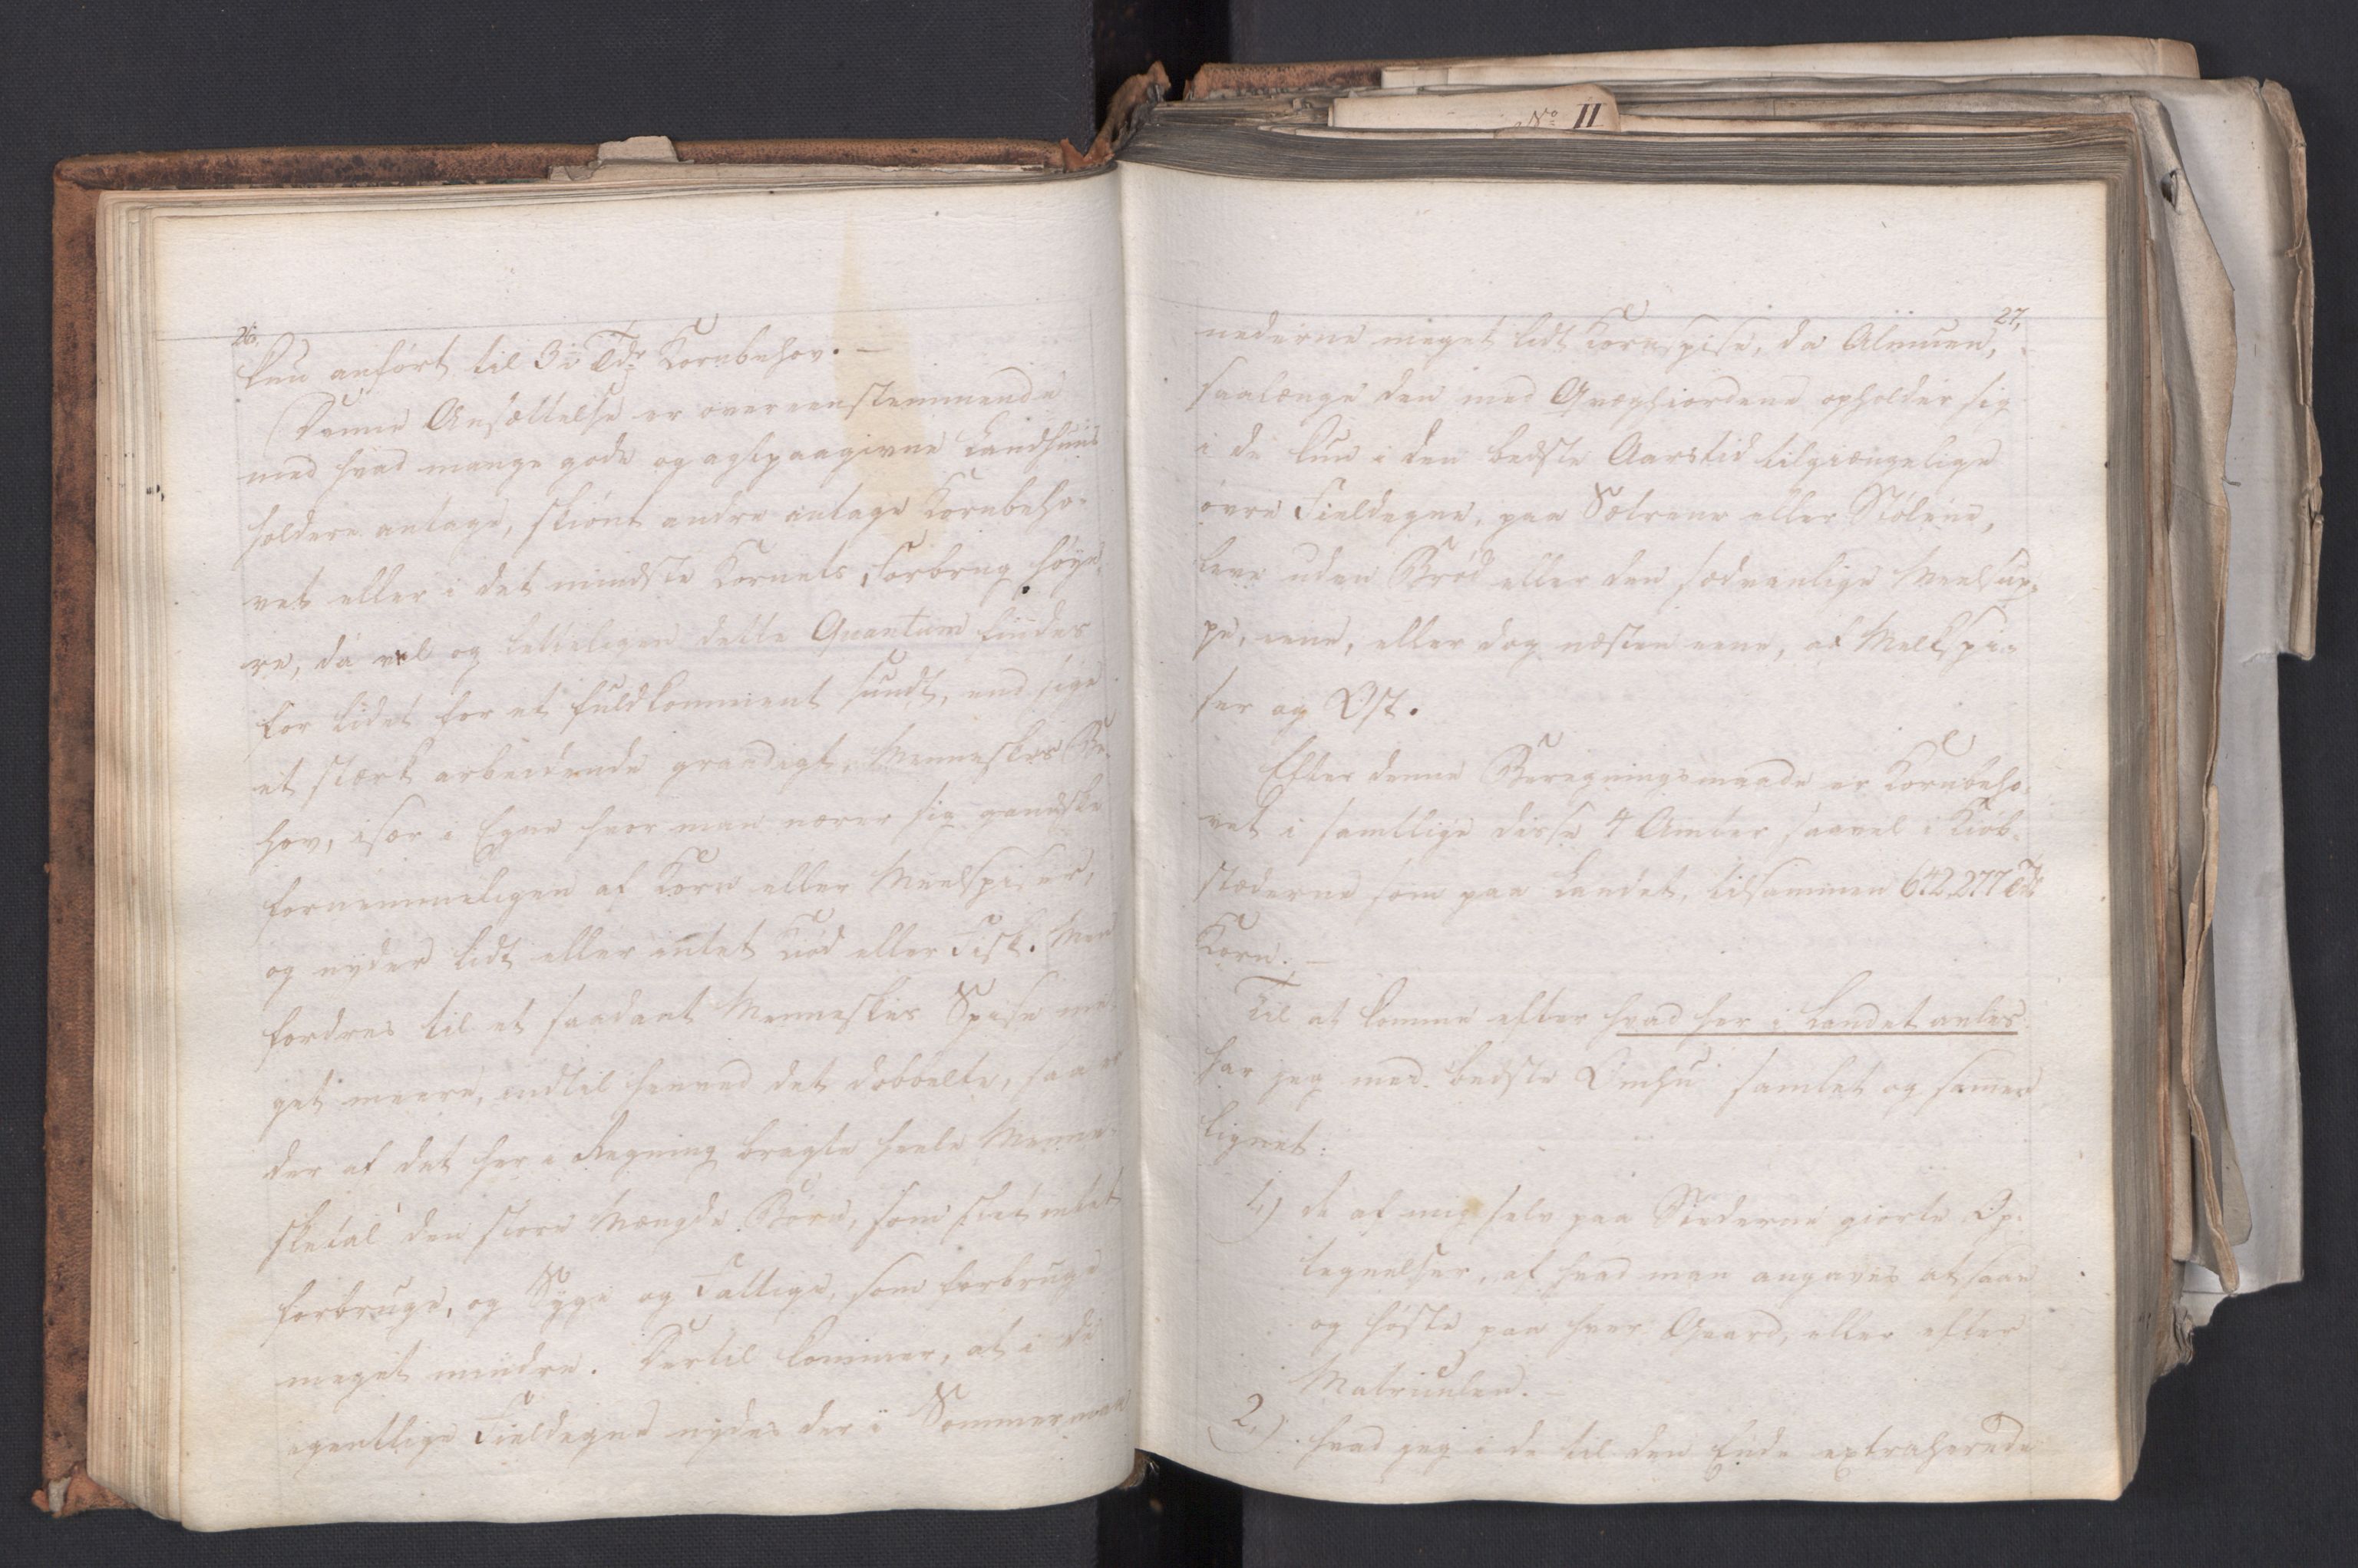 No II
26.
kun anført til 3 Tdr Kornbehov. —
Denne Ansættelse er overeensstemmende
med hvad mange gode og agtpaagivne Landhuus
holdere antage, skiønt andre antage Kornbeho-
vet eller i det mindste Kornets Forbrug høye-
re, da vel og letteligen dette Quantum findes
for lidet for et fuldkomment sundt, end sige
et stærk arbeidende grædigt Menneskes Be-
hov, især i Egne hvor man nærer sig gandske
fornemmeligen af Korn eller Meelspiser,
og nyder lidt eller intet Kiød eller Fisk. Men
fordres til et saadant Menneskes Spise me-
get meere, indtil henved det dobbelte, saa er
der af det her i Regning bragte heele Menne-
sketal den store Mængde Børn, som slet intet
forbruge, og Syge og Fattige, som forbruge
meget mindre. Dertil kommer, at i de
egentlige Fieldegne nydes der i Sommermaa
27,
nederne meget lidt Kornspise, da Almuen,
saalænge den med Qvæghiordene opholder sig
i de kun i den bedste Aarstid tilgiængelige
øvre Fieldegne, paa Sætrene eller Stølene,
leve uden Brød eller den sædvanlige Meelsup-
pe, eene, eller dog næsten eene, af Melkspi-
ser og Ost.
Efter denne Beregningsmaade er Kornbeho-
vet i samtlige disse 4 Amter saavel i Kiøb-
stæderne som paa Landet, tilsammen 642,277 Tdr
Korn. —
Til at komme efter hvad her i Landet avles
har jeg med bedste Omhu samlet og samen
lignet:
1,) de af mig selv paa Stederne giorte Op-
tegnelser, af hvad man angaves at saae
og høste paa hver Gaard, eller efter
Matriculen. —
2,) hvad jeg i de til den Ende extraherede